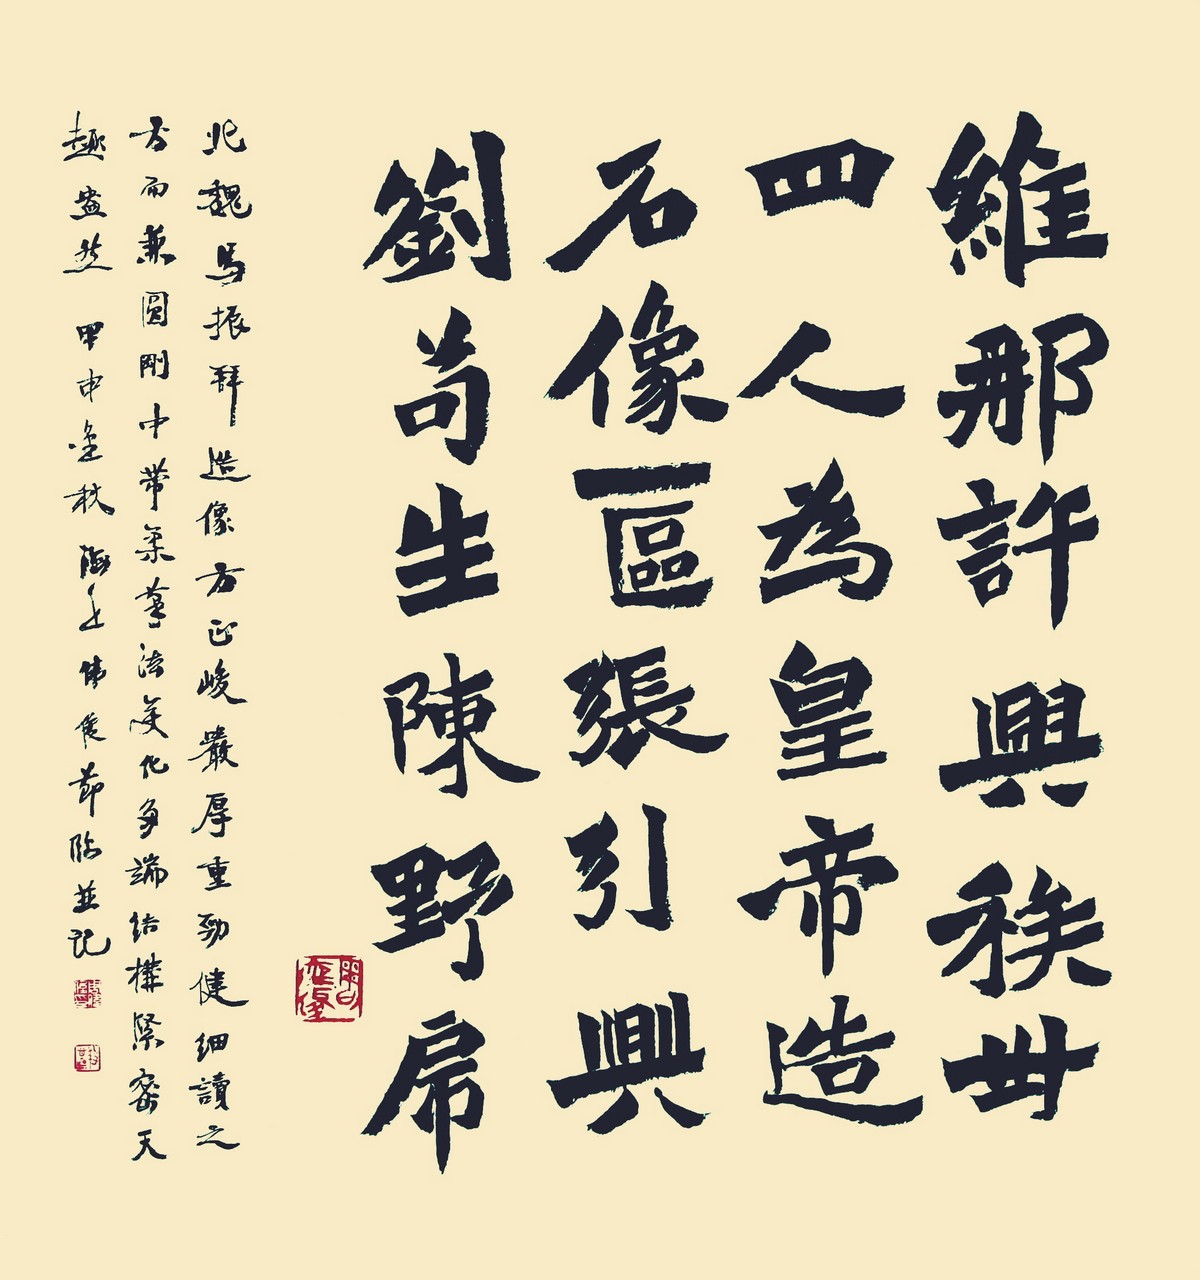 維那許興族卅
四人為皇帝造
石像一區張引興
劉苟生陳野虎
北魏馬振拜造像方正峻嚴厚重勁健細讀之
方而兼圓剛中帶柔筆法變化多端結構緊密天
趣盎然 甲申金秋 海上 節臨並記